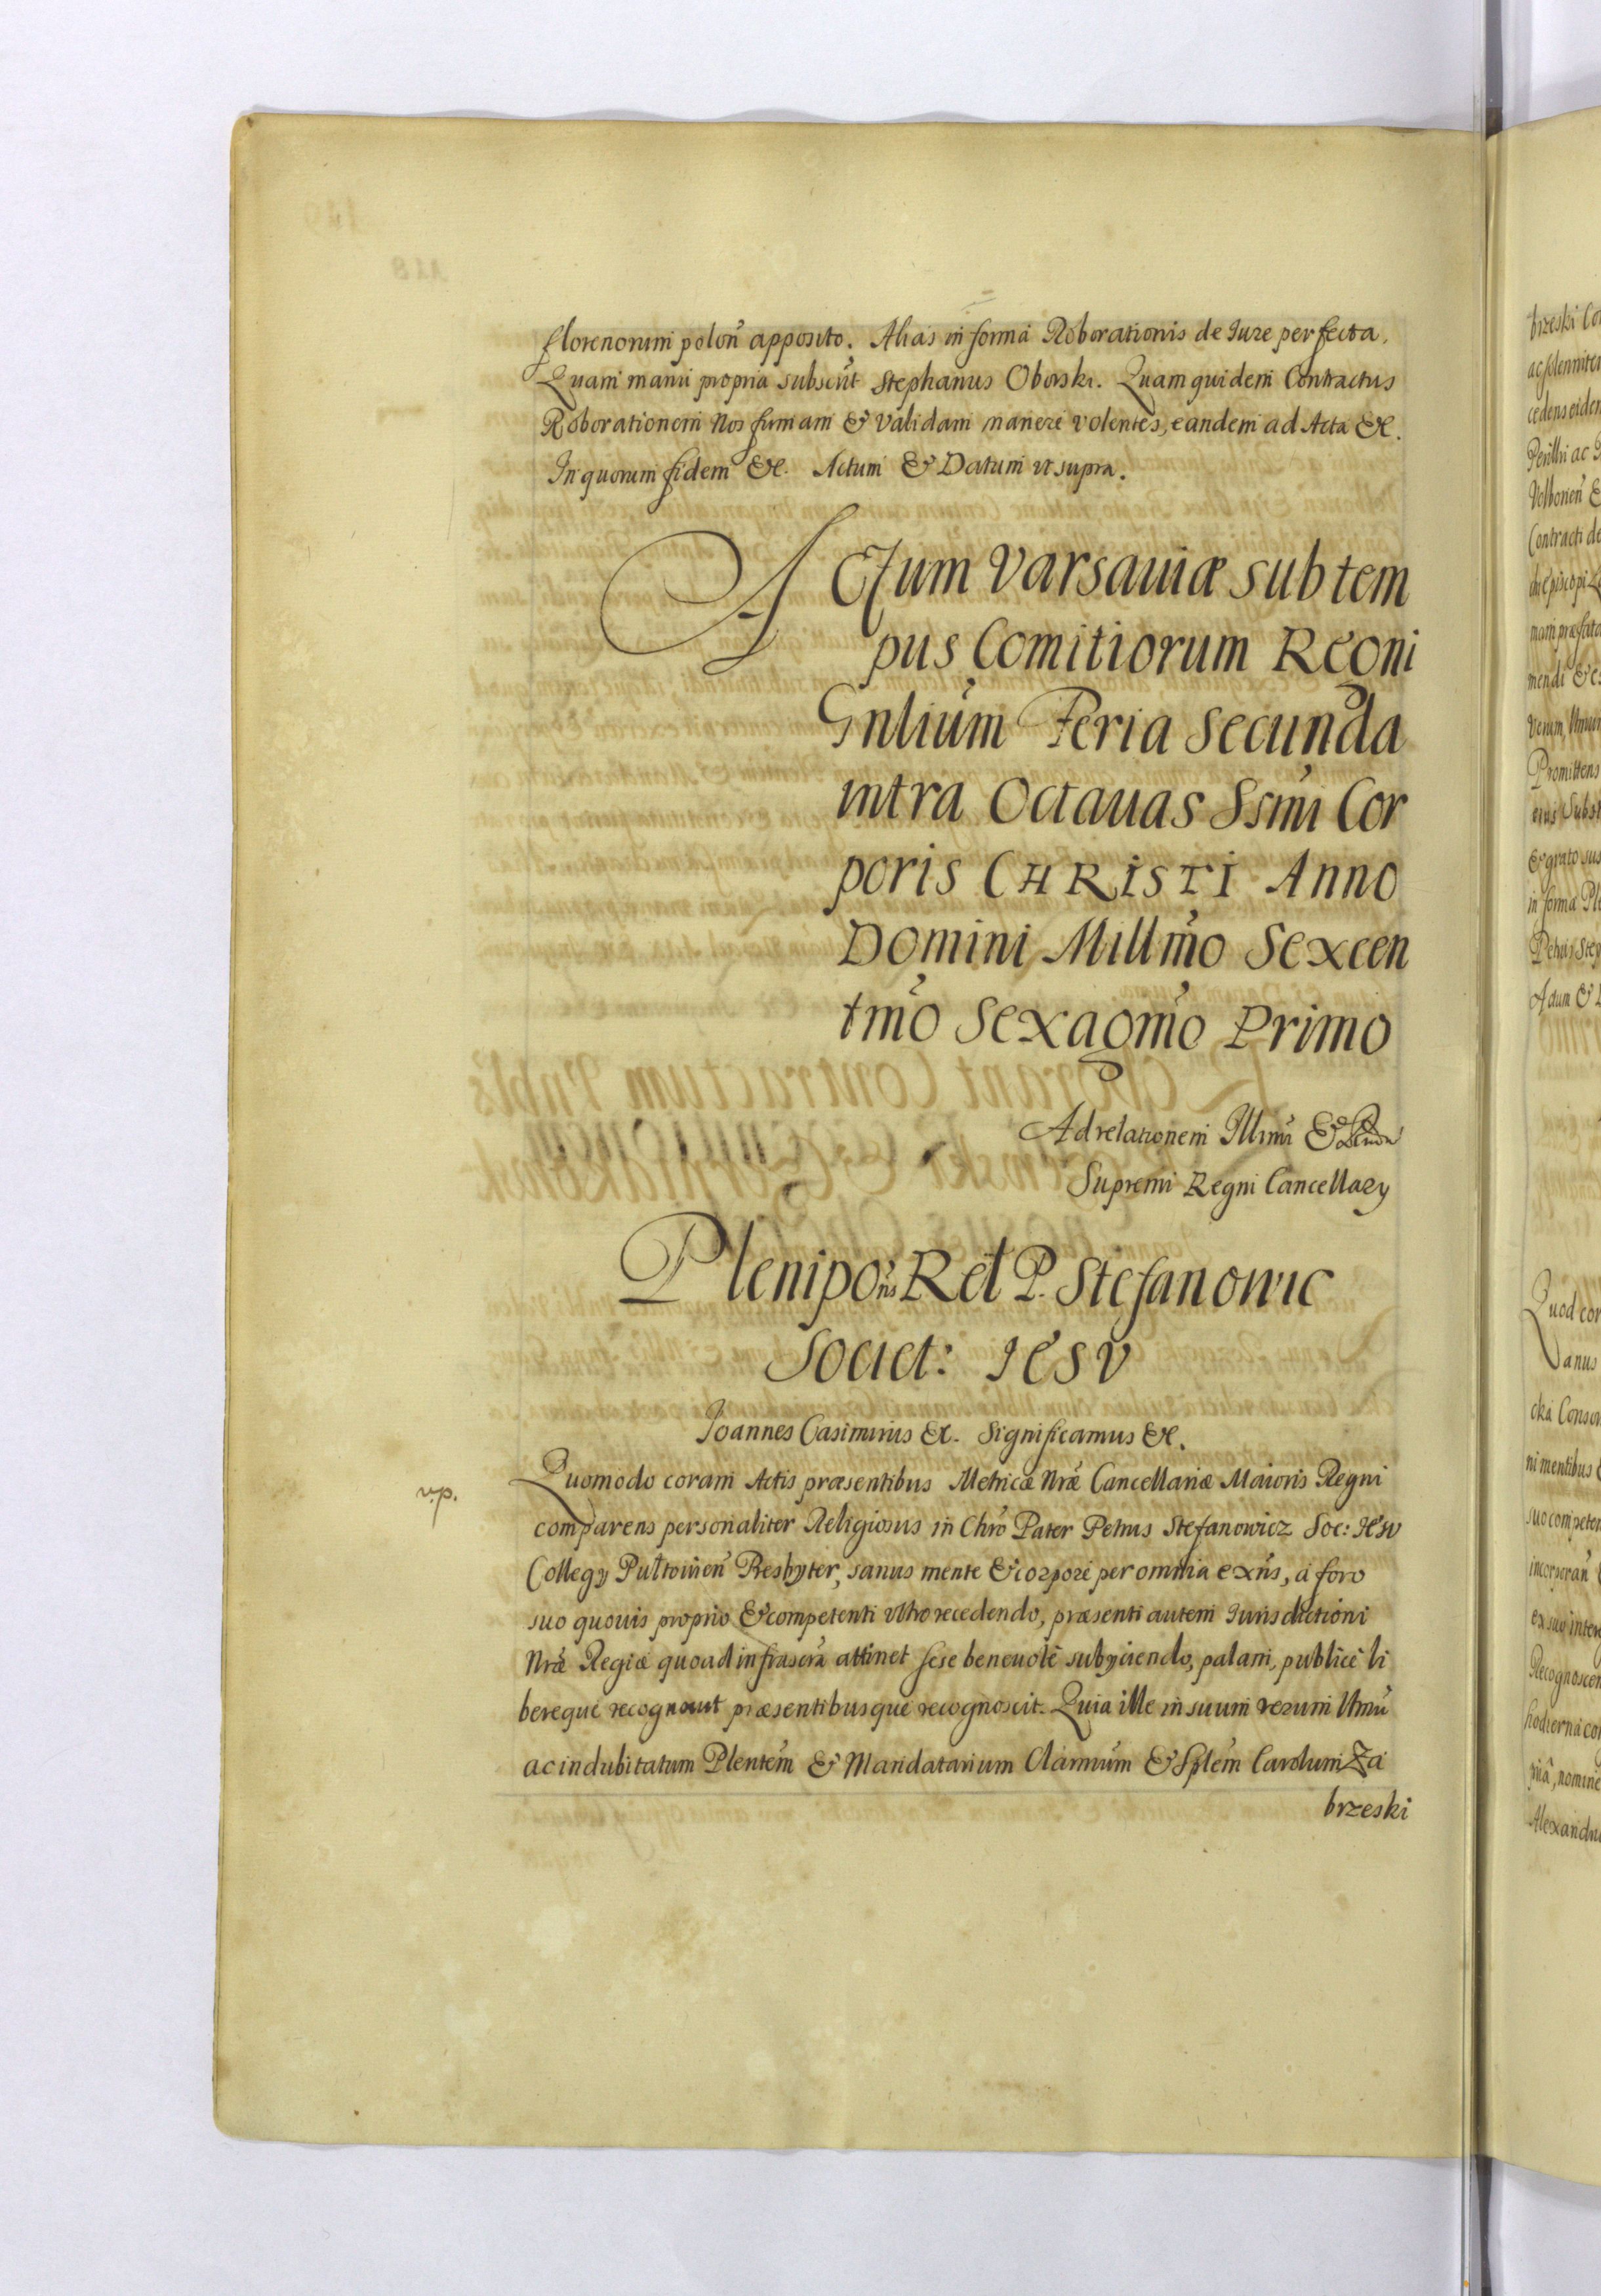 florenorum polon̄ apposito. Alias in forma Roborationis de Iure perfecta,
Quam manu propria subscrit Stephanus Oborski. Quam quidem Contractus
Roborationem Nos firmam & validam manere volentes, eandem ad Acta &c.
In quorum fidem &c. Actum & Datum ut supra.
ACtum Varsauiæ sub tem
pus Comitiorum Regni
Gnlium Feria Secunda
intra Octauas Ssmi Cor
poris CHRISTI Anno
Domini Millmo Sexcen
tmo Sexagmo Primo
Ad relationem Illmi &
Supremi Regni Cancellary
Plenipons Rel P. Stefanowic
Societ: IESV
Ioannes Casimirus &c. Significamus &c.
Quomodo coram Actis præsentibus Metricæ Nræ Cancellariæ Maioris Regni
v.p.
comparens personaliter Religiosus in Chro Pater Petrus Stefanowicz Soc: IESV
Collegy Pultouien̄ Presbyter, sanus mente & corpore per omnia exns, a foro
suo quouis proprio & competenti vltro recedendo, præsenti autem Iurisdictioni
Nræ Regiæ quoad infrascra attinet sese beneuole subyciendo, palam, publice li
bereque recognouit præsentibusque recognoscit. Quia ille in suum verum Ltmu
ac indubitatum Plentem & Mandatarium Clarmum & Splem Carolum Za
brzeski